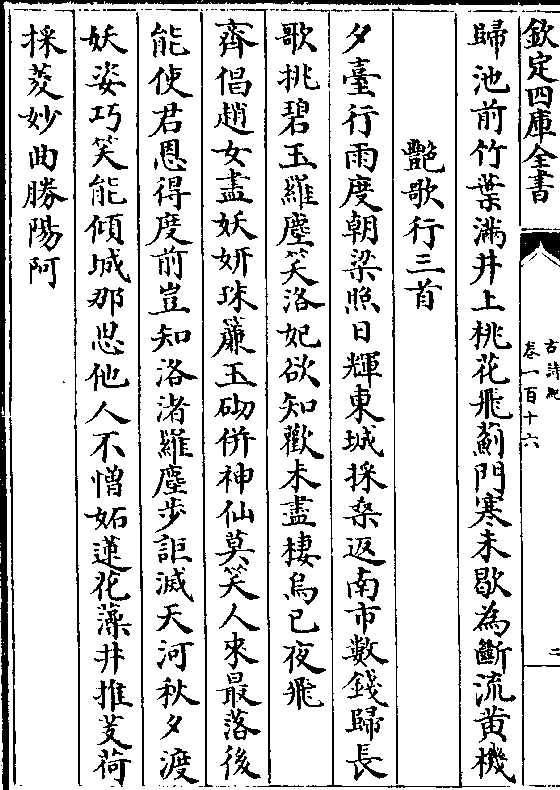 欽定四庫全書
古詩紀
卷一百十六
三
歸池前竹葉滿井上桃花飛薊門寒未歇為斷流黄機
艷歌行三首
夕臺行雨度朝梁照日輝東城採桑返南市數錢歸長
歌挑碧玉羅塵笑洛妃欲知歡未盡棲烏已夜飛
齊倡趙女盡妖妍珠簾玉砌併神仙莫笑人來最落後
能使君恩得度前豈知洛渚羅塵步詎滅天河秋夕渡
妖姿巧笑能傾城那思他人不憎妬蓮花藻井推芰荷
採菱妙曲勝陽阿